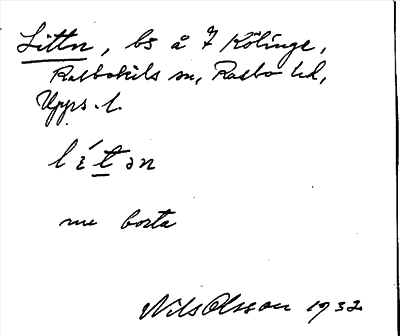 Littn, bs å F Kölinge,
Rasbokils sn, Rasbo hd,
Upps. l.
lítən
nu borta
Nils Olsson 1932